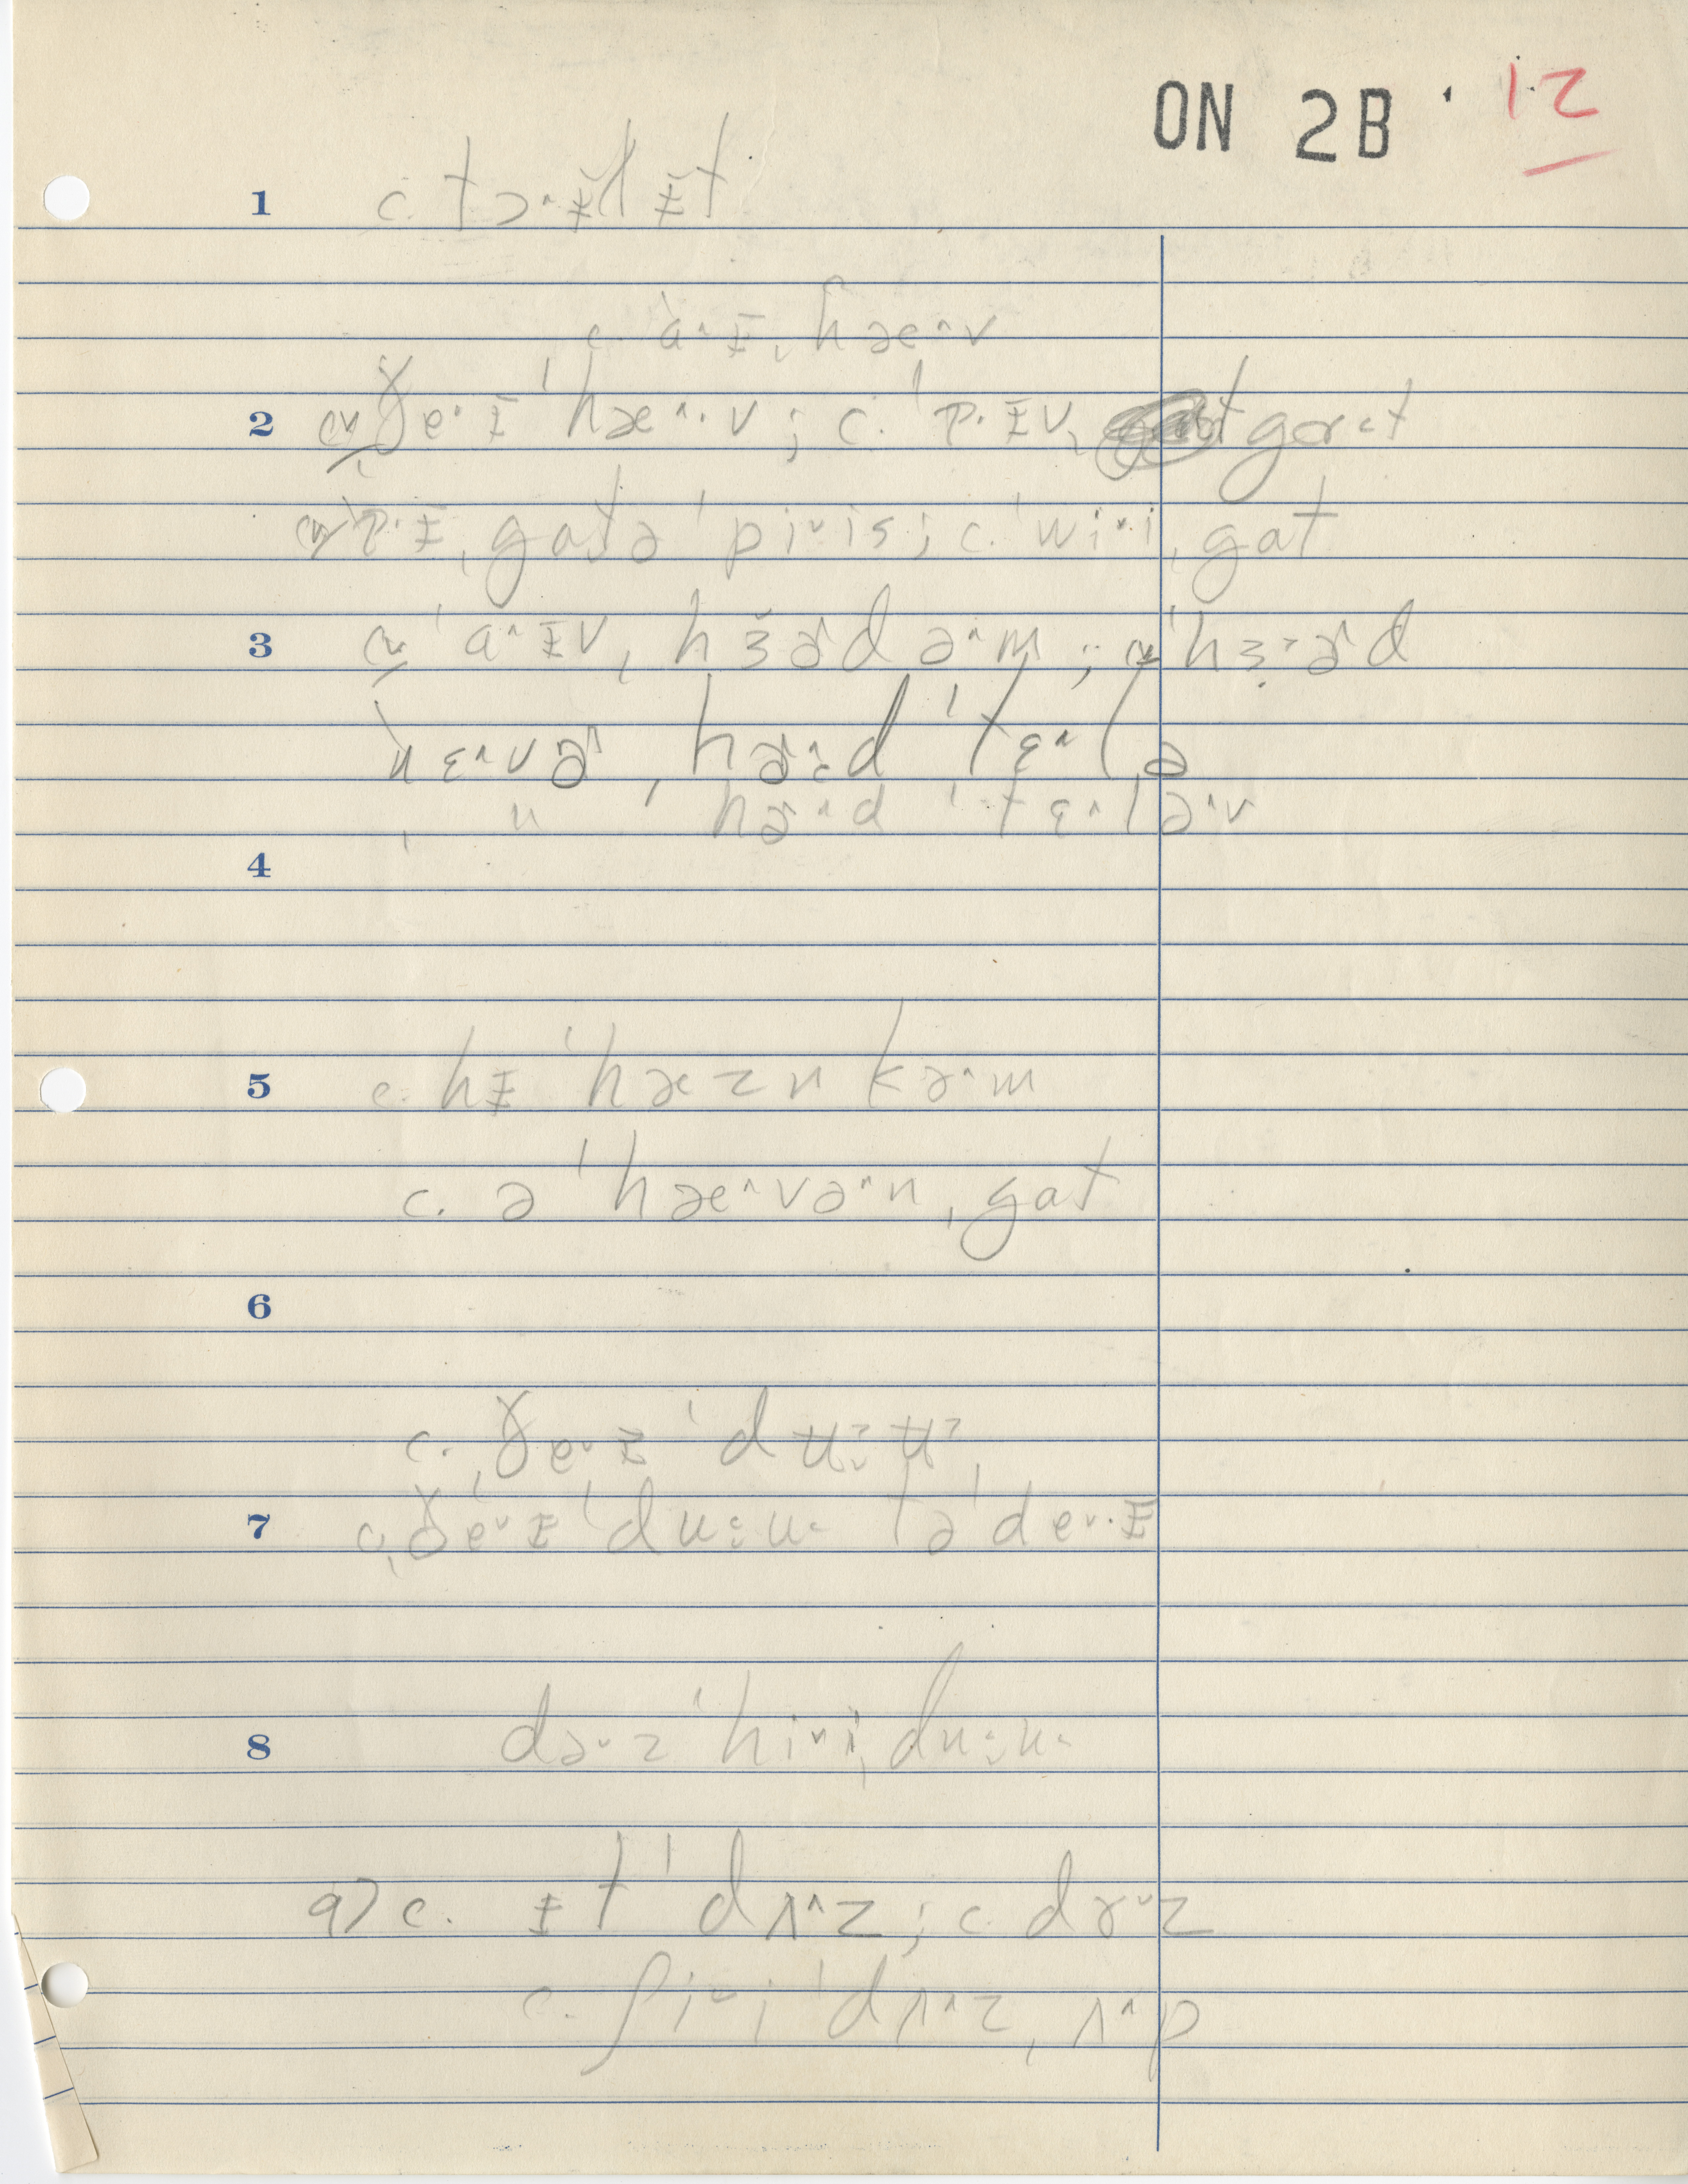 ON 2B · 12
1 c. tɔ·ɪ̵̆d ɪ̵̆t
c. a^ɪ̵ ˌhæ^v
2 ˌðe·ɪ̵ ˈhæ^·v; c. ˈɒ·ɪ̵v, gɑt
ˈɒ·ɪ̵ ˌgatə ˈpiᵛis; c. ˈwiᵛ·i ˌgat
3 ˈa^ɪ̵v ˌhɜ̆ɚd ə^m; ˈhɜ˃ɚd
ˈnɛ^vɚ ˌhɚ:d ˈtɛ^lə
ˌ " hɚ^d ˈtɛ^lə^v
4
5 c. hɪ̵ ˈhæzn kə^m
c. ə ˈhæ^və^n ˌgat
6
c. ˌðeᵛɪ̵ ˈdʉ:ʉ˃
7 c. ˌðeᵛɪ̵ ˈdu:u˂ tə ˈdeᵛ·ɪ̵
8 dəᵛz ˈhiᵛi ˌdu:u˂
a) c. ɪ̵t ˈdʌ^z; c. dɤᵛz
c. ʃiᵛi ˈdʌ^z ˌʌ^p